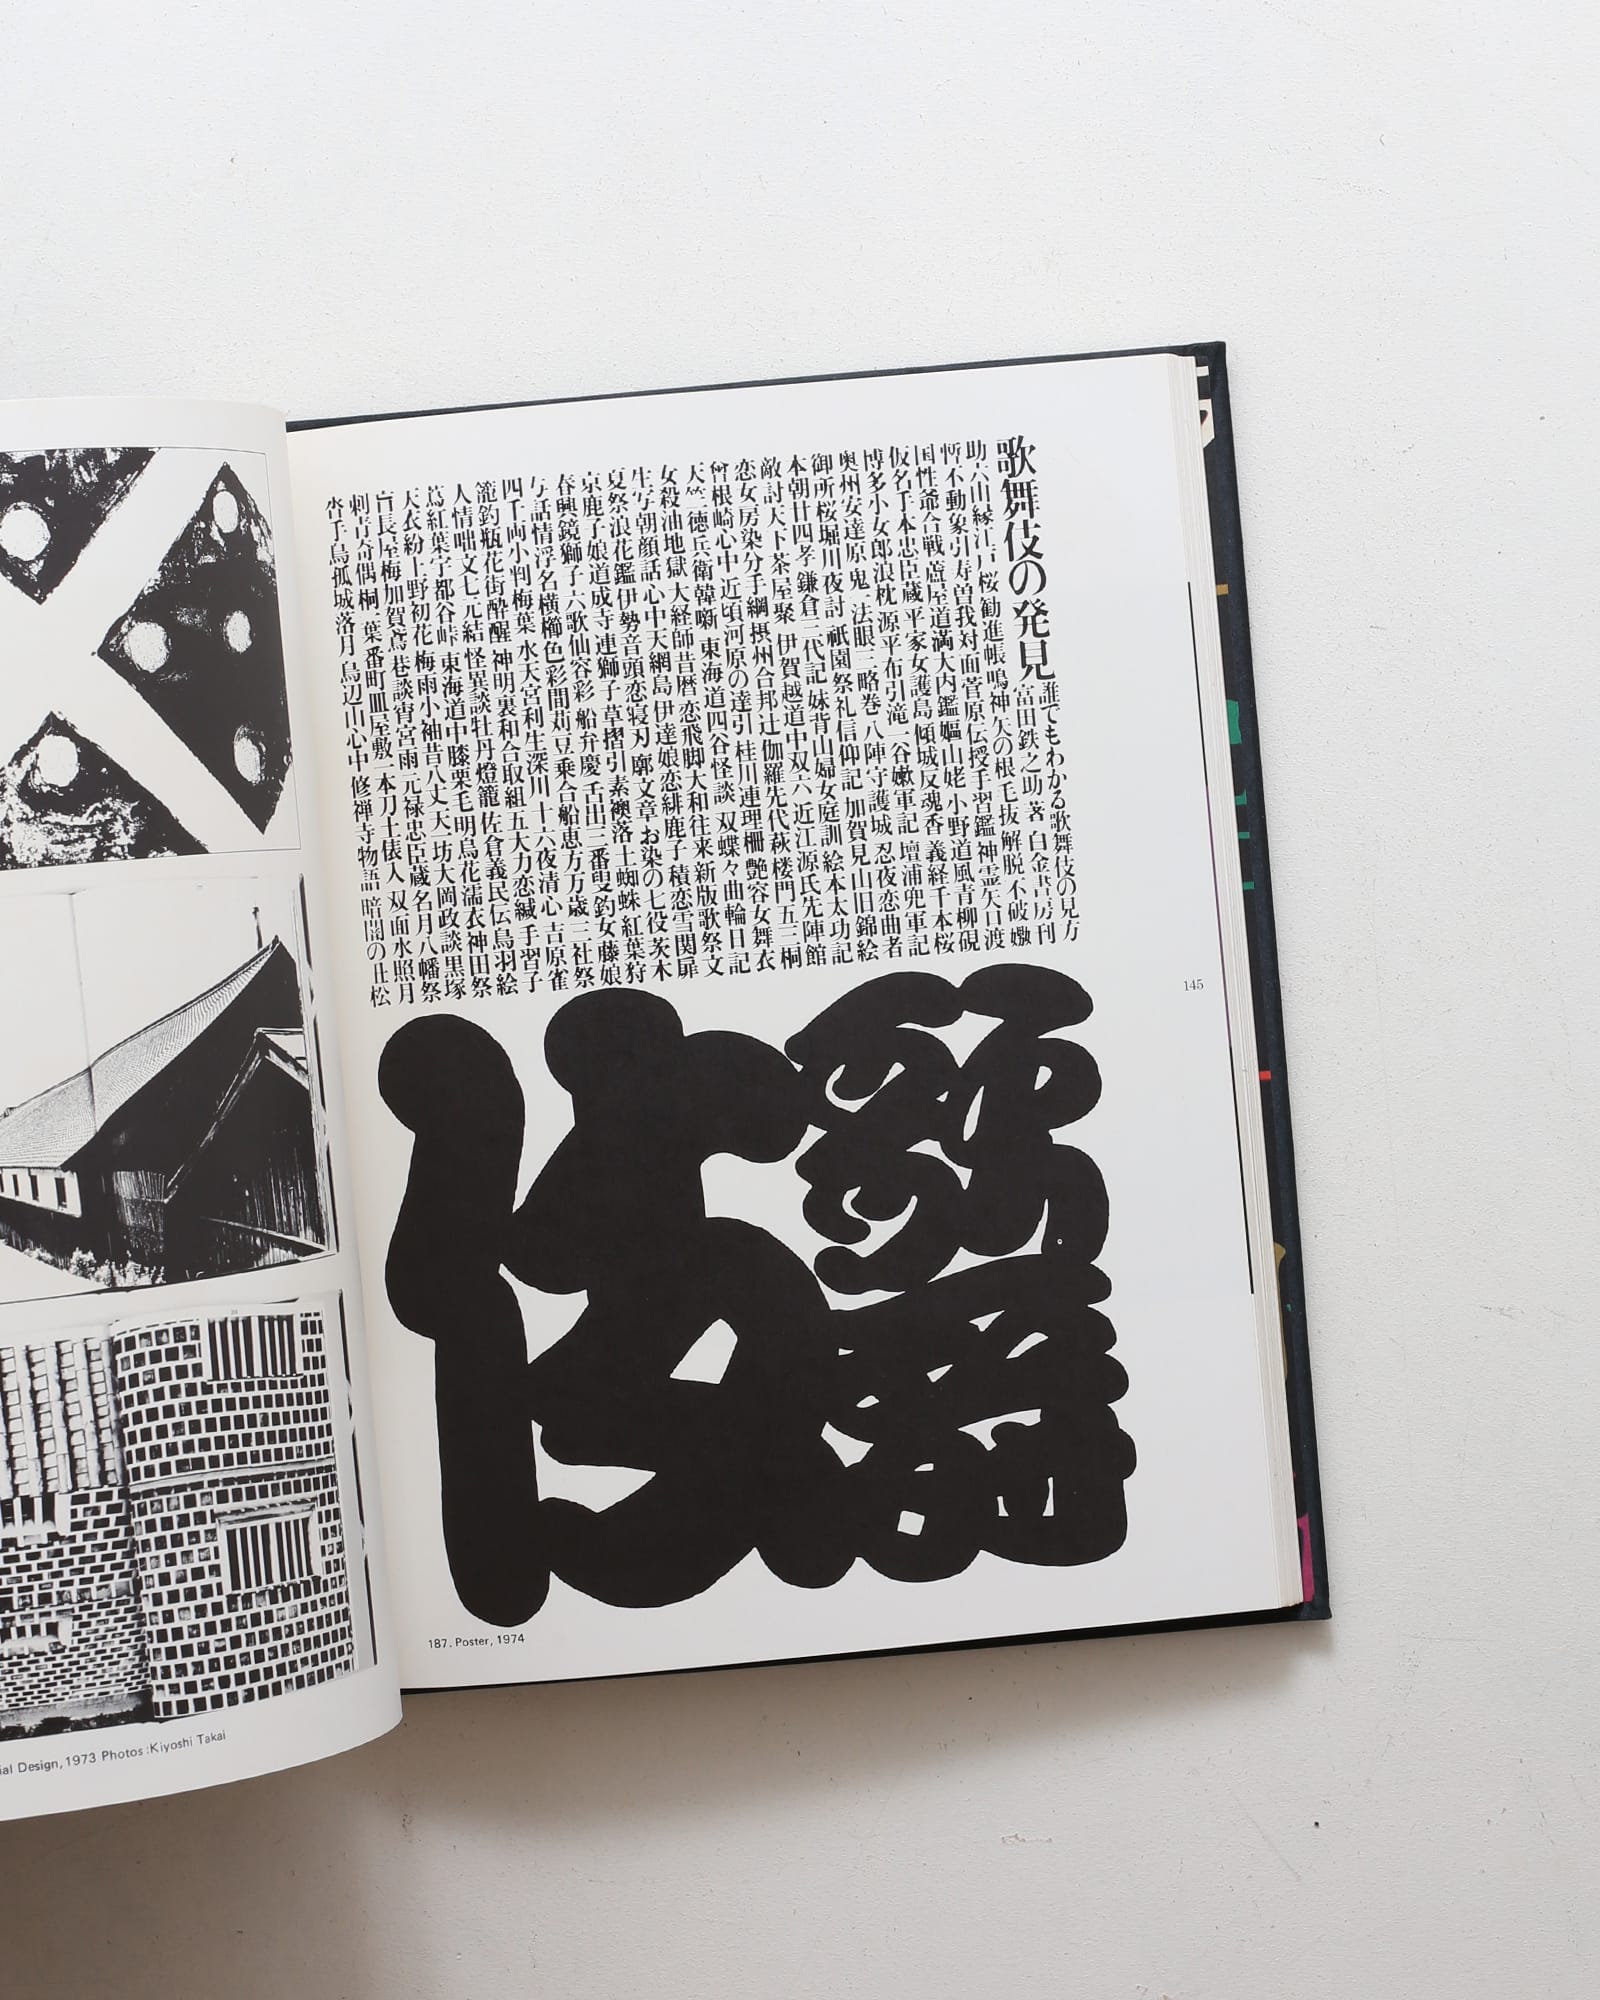 歌舞伎の発見
誰でもわかる歌舞伎の見方
富田鉄之助 著 白金書房刊
助六由縁江戸桜 勧進帳 鳴神 矢の根 毛抜 解脱 不破 嫐
暫 不動 象引 寿曽我対面 菅原伝授手習鑑 神霊矢口渡
国性爺合戦 蘆屋道満大内鑑 嫗山姥 小野道風青柳硯
仮名手本忠臣蔵 平家女護島 傾城反魂香 義経千本桜
博多小女郎浪枕 源平布引滝 一谷嫩軍記 壇浦兜軍記
奥州安達原 鬼一法眼三略巻 八陣守護城 忍夜恋曲者
御所桜堀川夜討 祇園祭礼信仰記 加賀見山旧錦絵
本朝廿四孝 鎌倉三代記 妹背山婦女庭訓 絵本太功記
敵討天下茶屋聚 伊賀越道中双六 近江源氏先陣館
恋女房染分手綱 摂州合邦辻 伽羅先代萩 楼門五三桐
曽根崎心中 近頃河原の達引 桂川連理柵 艶容女舞衣
天竺徳兵衛韓噺 東海道四谷怪談 双蝶々曲輪日記
女殺油地獄 大経師昔暦 恋飛脚大和往来 新版歌祭文
生写朝顔話 心中天網島 伊達娘恋緋鹿子 積恋雪関扉
夏祭浪花鑑 伊勢音頭恋寝刃 廓文章 お染の七役 茨木
京鹿子娘道成寺 連獅子 草摺引 素襖落 土蜘蛛 紅葉狩
春興鏡獅子 六歌仙容彩 船弁慶 舌出三番叟 釣女 藤娘
与話情浮名横櫛 色彩間苅豆 乗合船恵方万歳 三社祭
四千両小判梅葉 水天宮利生深川 十六夜清心 吉原雀
籠釣瓶花街酔醒 神明裏和合取組 五大力恋緘 手習子
人情咄文七元結 怪異談牡丹燈籠 佐倉義民伝 鳥羽絵
蔦紅葉宇都谷峠 東海道中膝栗毛 明烏花濡衣 神田祭
天衣紛上野初花 梅雨小袖昔八丈 天一坊大岡政談 黒塚
盲長屋梅加賀鳶 巷談宵宮雨 元禄忠臣蔵 名月八幡祭
刺青奇偶 桐一葉 番町皿屋敷 一本刀土俵入 双面水照月
沓手鳥孤城落月 鳥辺山心中 修禅寺物語 暗闇の丑松
歌舞伎
145
187. Poster, 1974
ial Design, 1973 Photos: Kiyoshi Takai